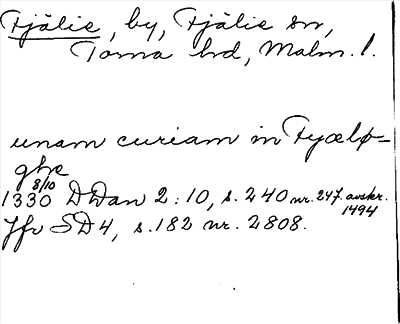 Fjälie, by, Fjälie sn,
Torna hd, Malm. l.
unam curiam in Fyælø=
ghæ
1330 8/10 DDan 2:10, s. 240 nr. 247. avskr. 1494
Jfr SD4, s. 182 nr. 2808.